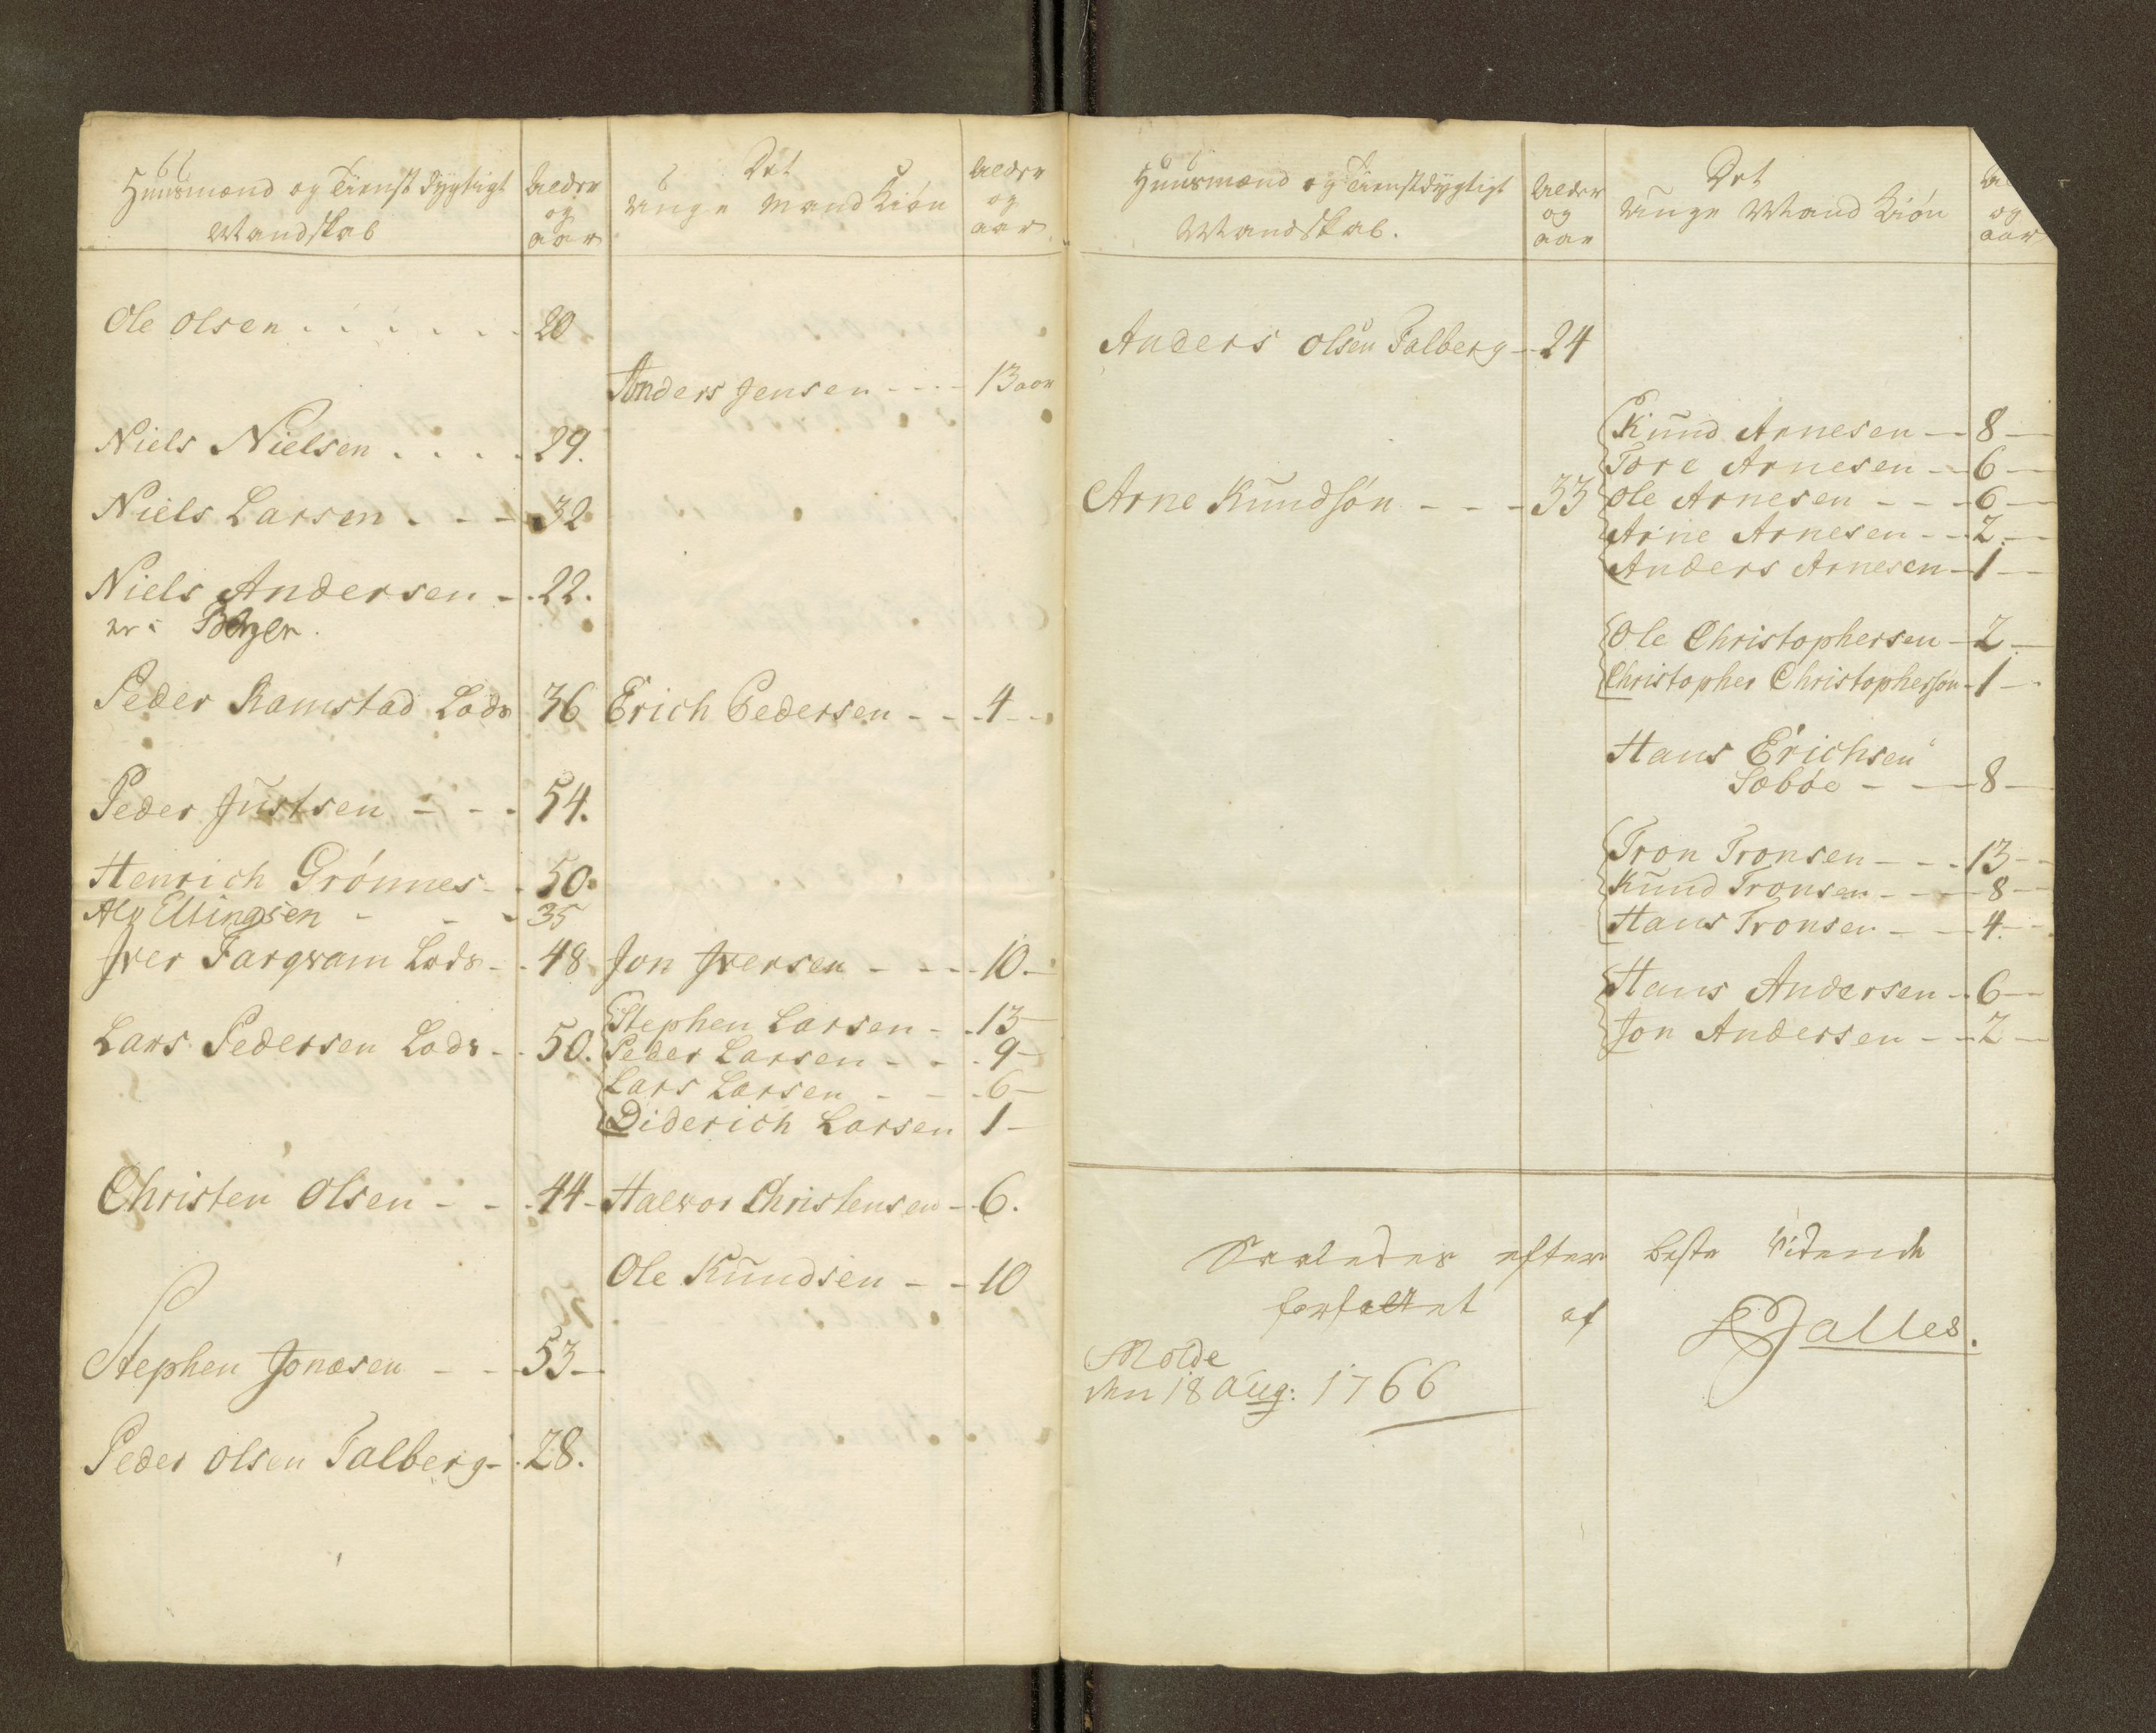 Huusmænd og Tienstdygtigt
Mandskab
Alder
og
aar
Det
Unge Mand Kiøn
Alder
og
aar
Ole Olsen . . . . . . 20
Anders Jensen - - - - 13 aar
Niels Nielsen . . . . 29.
Niels Larsen . - - 32
Niels Andersen - . 22.
er
Peder Ramstad Lods 36 Erich Pedersen - - - 4 -
Peder Justsen - - - 54.
Henrich Grønnes - . 50.
Ellingsen - - - 35
Iver Fargvam Lods - . 48 Jon Iversen - - - - 10. -
Stephen Larsen - . 13 -
Lars Pedersen Lods - . 50. Peder Larsen - - . 9 -
Lars Larsen - - - 6 -
Diderich Larsen 1 -
Christen Olsen - - . 44 - Halvor Christensen - 6.
Ole Knudsen - - 10
Stephen Jonæsen - - 53 -
Peder Olsen Talberg - . 28.
Huusmænd og Tienstdygtigt
Mandskab.
Alder
og
aar
Det
Unge Mand Kiøn
og
aar
Anders Olsen Talberg - 24
Knud Arnesen - - 8 -
Tore Arnesen - - 6 -
Arne Knudsøn - - - 33 Ole Arnesen - - - 6 -
Arne Arnesen - - 2. -
Anders Arnesen - 1 -
Ole Christophersen - 2 -
Christopher Christophersøn - 1 -
Hans Erichsen
Sæbøe - - - 8 -
Tron Tronsen - - - 13 -
Knud Tronsen - - - 8 -
Hans Tronsen - - 4. -
Hans Andersen - . 6 -
Jon Andersen - - 2 -
Saaledes efter beste Vidende
forfattet af
Molde
den 18 Aug: 1766